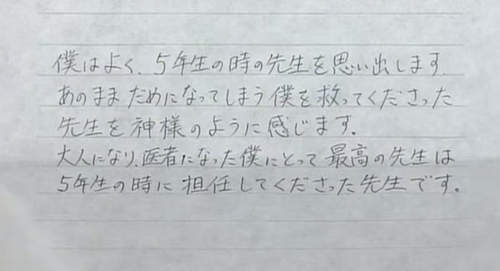 僕はよく、5年生の時の先生を思い出します
あのままだめになってしまう僕を救ってくださった
先生を神様のように感じます。
大人になり、医者になった僕にとって最高の先生は
5年生の時に担任してくださった先生です。